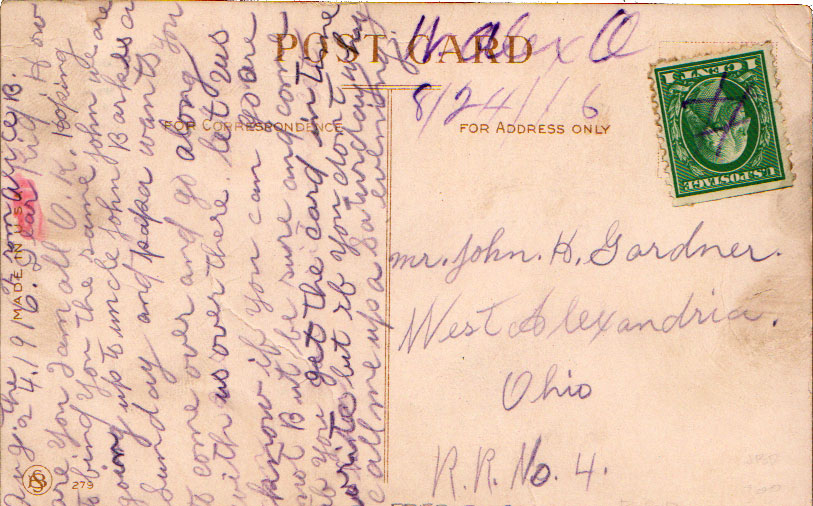 POST CARD
W. Alex O
8/24/16
FOR CORRESPONDENCE
FOR ADDRESS ONLY
U.S. POSTAGE
1 CENT 1
MADE IN U.S.A.
Aug. the from Alice B.
24. 1916. Dear Kid How
are you I am all O.K. hoping
to bing you the same John we are
going up to uncle John Barks a
Sunday and papa wants you
to come over and go along
with us over there. let us
know if you can go are
not But be sure and come
if you get the card in time
write but if you don't why
call me up a Saturday
evening
mr. John. H. Gardner.
West Alexandria.
Ohio
R.R. No. 4.
279